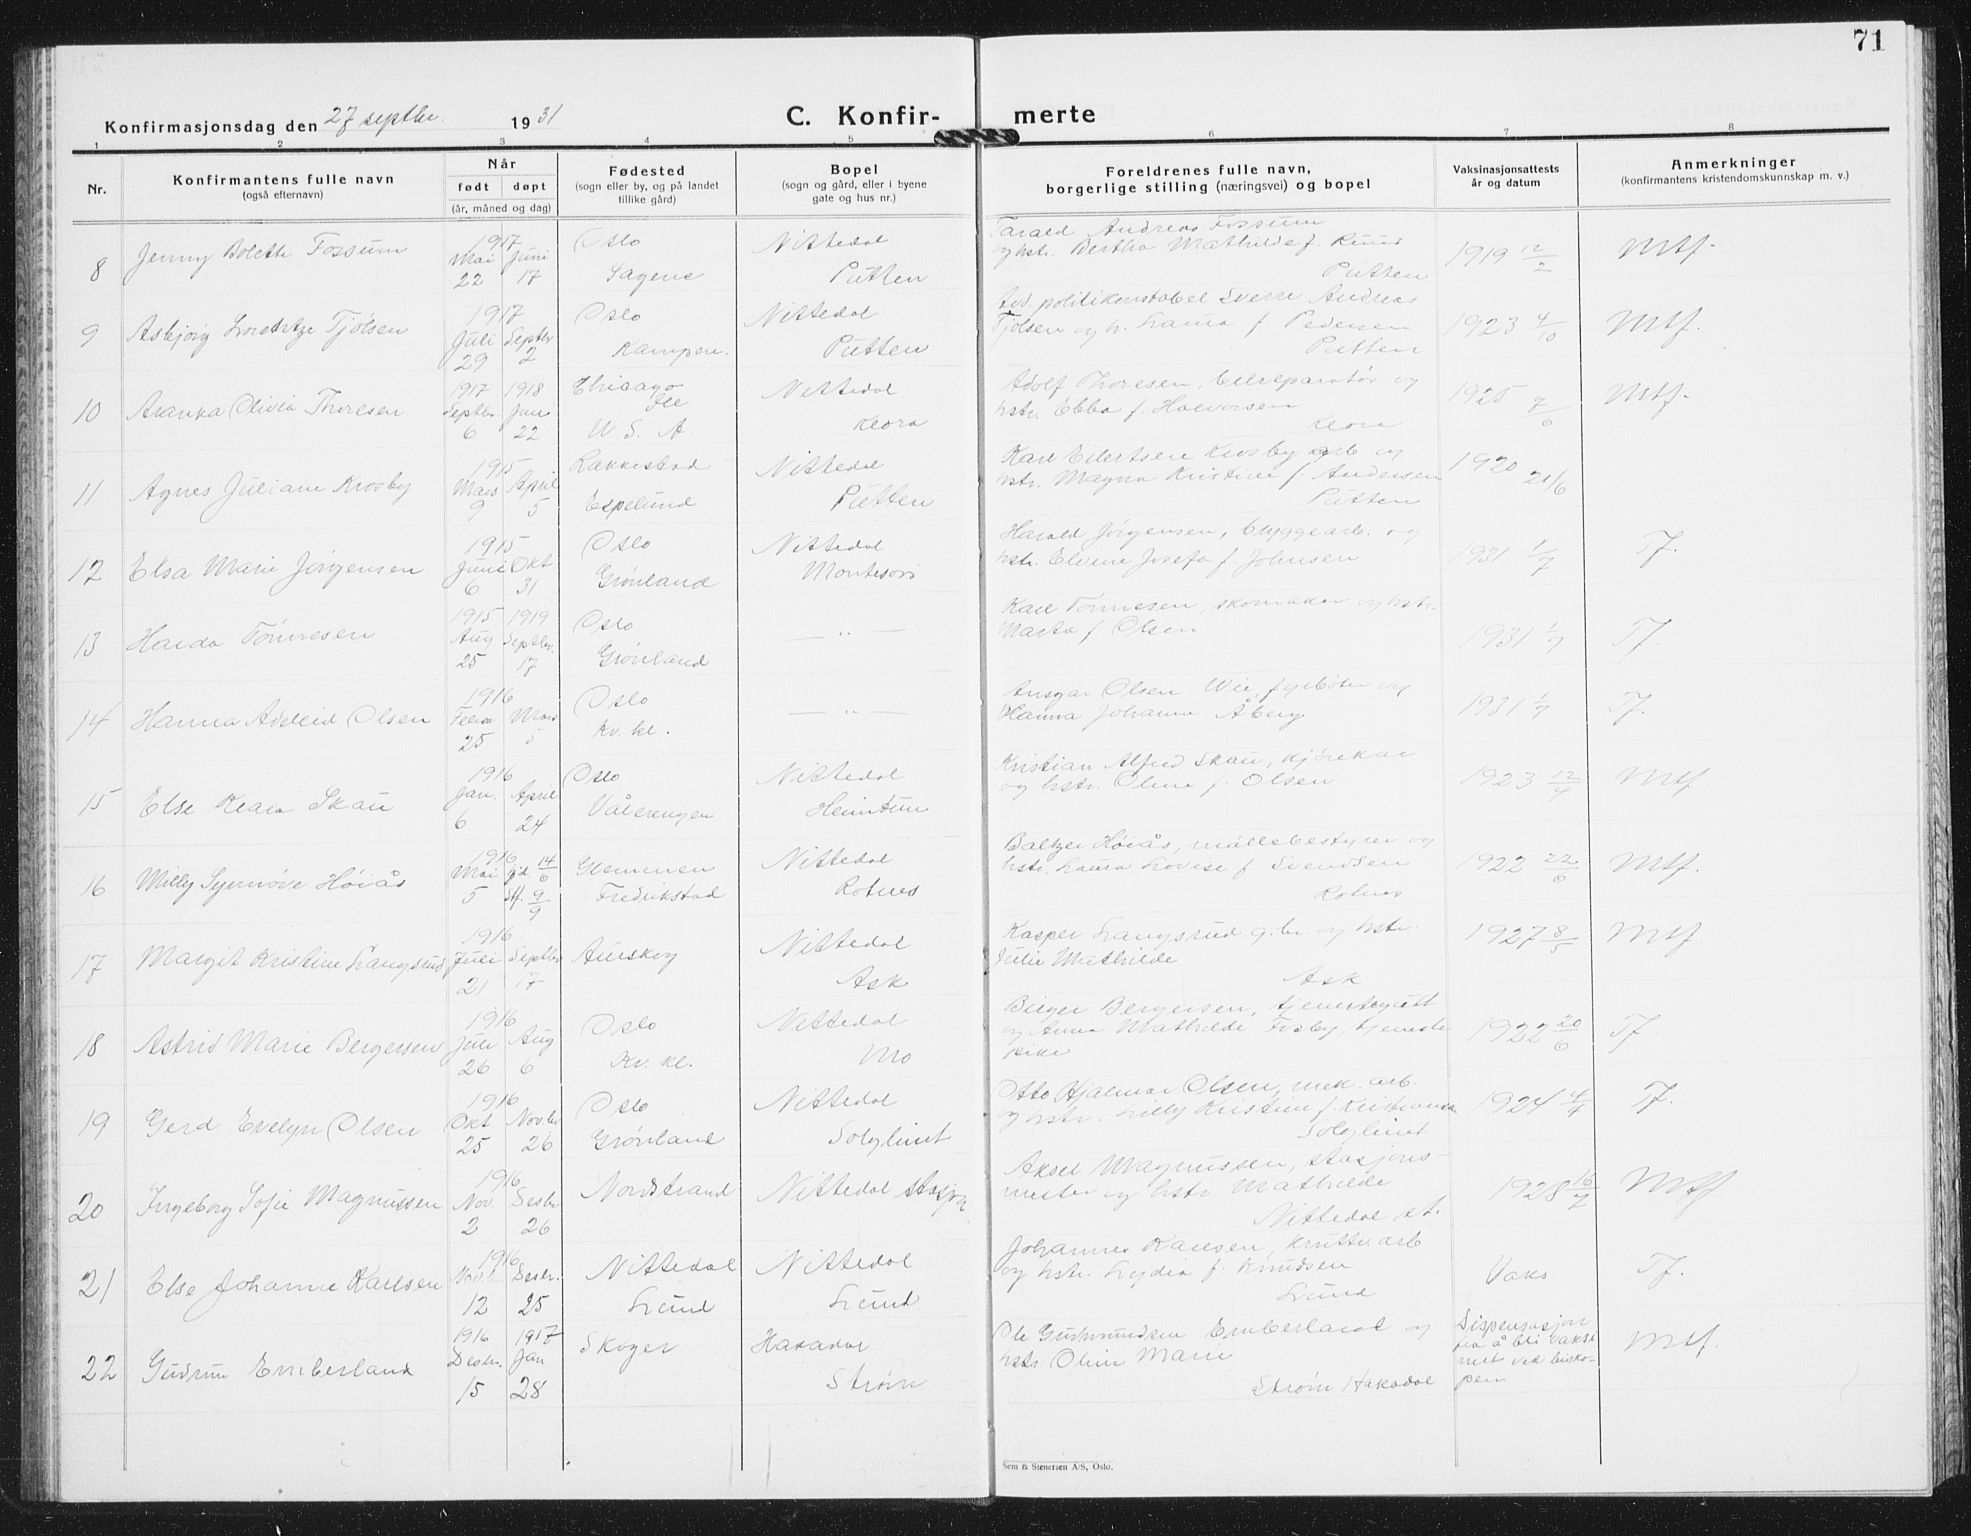 71
Konfirmasjonsdag den 27 septbr. 1931
C. Konfir- merte
1 2 3 4 5 6 7 8
Nr.
Konfirmantens fulle navn
(også efternavn)
Når
født døpt
(år, måned og dag)
Fødested
(sogn eller by, og på landet
tillike gård)
Bopel
(sogn og gård, eller i byene
gate og hus nr.)
Foreldrenes fulle navn,
borgerlige stilling (næringsvei) og bopel
Vaksinasjonsattests
år og datum
Anmerkninger
(konfirmantens kristendomskunnskap m. v.)
8 Jenny Bolette Fossum
1917 Mai 22 Juni 17
Oslo Sagene
Nittedal Putten
Tarald Andreas Fossum
og hstr. Bertha Mathilde f. Ruud
Putten
1919 12/2
Mtf.
9 Asbjørg Tjølsen
1917 Juli 29 Septbr 2
Oslo Kampen.
Nittedal Putten
Avd. politikonstabel Sverre Andreas
Tjølsen og h. Laura f. Pedersen
Putten
1923 4/10
Mtf.
10 Aranka Olivia Thoresen
1917 Septbr. 6 1918 Jan 22
Chicago Ill U. S. A.
Nittedal Klora
Adolf Thoresen, bilreparatør og
hstr. Ebba f. Halvorsen
Klora
1925 7/6
Mtf.
11 Agnes Juliane Krosby
1915 Mars 9 April 5
Rakkestad Espelund
Nittedal Putten
Karl Eilertsen Krosby arb og
hstr. Magna Kristine f. Andersen
Putten
1920 21/6
12 Elsa Marie Jørgensen
1915 Juni 6 Okt 31
Oslo Grønland
Nittedal Montesori
Harald Jørgensen, bryggearb. og
hstr. Elvine Josefa f. Johnsen
1931 1/7
Tf.
13 Tønnesen
1915 Aug 25 1919 Septbr. 17
Oslo Grønland
— „ —
Karl Tønnesen, skomaker og hstr.
Marta f Olsen
1931 1/7
Tf.
14 Hanna Adeleid Olsen
1916 Febr 25 Mars 5
Oslo Kv. kl.
— „ —
Ansgar Olsen Wie, fyrbøter og
Hanna Johanne Åberg
1931 1/7
Tf.
15 Else Klara Skau
1916 Jan. 6 April 24
Oslo Vålerengen
Nittedal Heimtun
Kristian Alfred Skau, kjørekar
og hstr. Oline f Olsen
1923 12/4
Mtf.
16 Milly Synnøve Høiås
1916 Mai 5 hjd. 14/6 Stf. 9/9
Glemmen Fredrikstad
Nittedal Rotnes
Baltzer Høiås, møllebestyrer og
hstr. Laura Lovise f. Svendsen
Rotnes
1922 22/6
Mtf.
17 Margit Kristine Langsrud
1916 Juli 21 Septbr 17
Aurskog
Nittedal Ask
Kasper Langsrud g.br. og hstr.
Julie Mathilde
Ask
1927 8/5
Mtf.
18 Astrid Marie Bergersen
1916 Juli 26 Aug 6
Oslo Kv. kl.
Nittedal Mo
Birger Bergersen, tjenestegutt
og Anna Mathilde Fosby, tjeneste
pike
1922 20/6
Tf.
19 Gerd Evelyn Olsen
1916 Okt 25 Novbr 26
Oslo Grønland
Nittedal Solglimt
Otto Hjalmar Olsen, mek. arb.
og hstr. Lilly Kristine f. Kristiansen
Solglimt
1924 4/4
Tf.
20 Ingeborg Sofie Magnussen
1916 Nov. 2 Desbr 26
Nordstrand
Nittedal stasjon
Aksel Magnussen, stasjons-
mester og hstr. Mathilde
Nittedal st.
1928 16/7
Mtf.
21 Else Johanne Karlsen
1916 Novbr. 12 Desbr. 25
Nittedal Lund
Nittedal Lund
Johannes Karlsen, kruttv.arb
og hstr. Lydia f. Knudsen
Lund
Vaks.
Tf.
22 Gudrun Emberland
1916 Desbr. 15 1917 Jan 28
Skoger
Hakadal Strøm
Ole Gudmundsen Emberland og
hstr. Oline Marie
Strøm Hakadal
Dispensasjon
fra å bli vaksi
nert ved bisko-
pen
Mtf.
Sem & Stenersen A/S, Oslo.